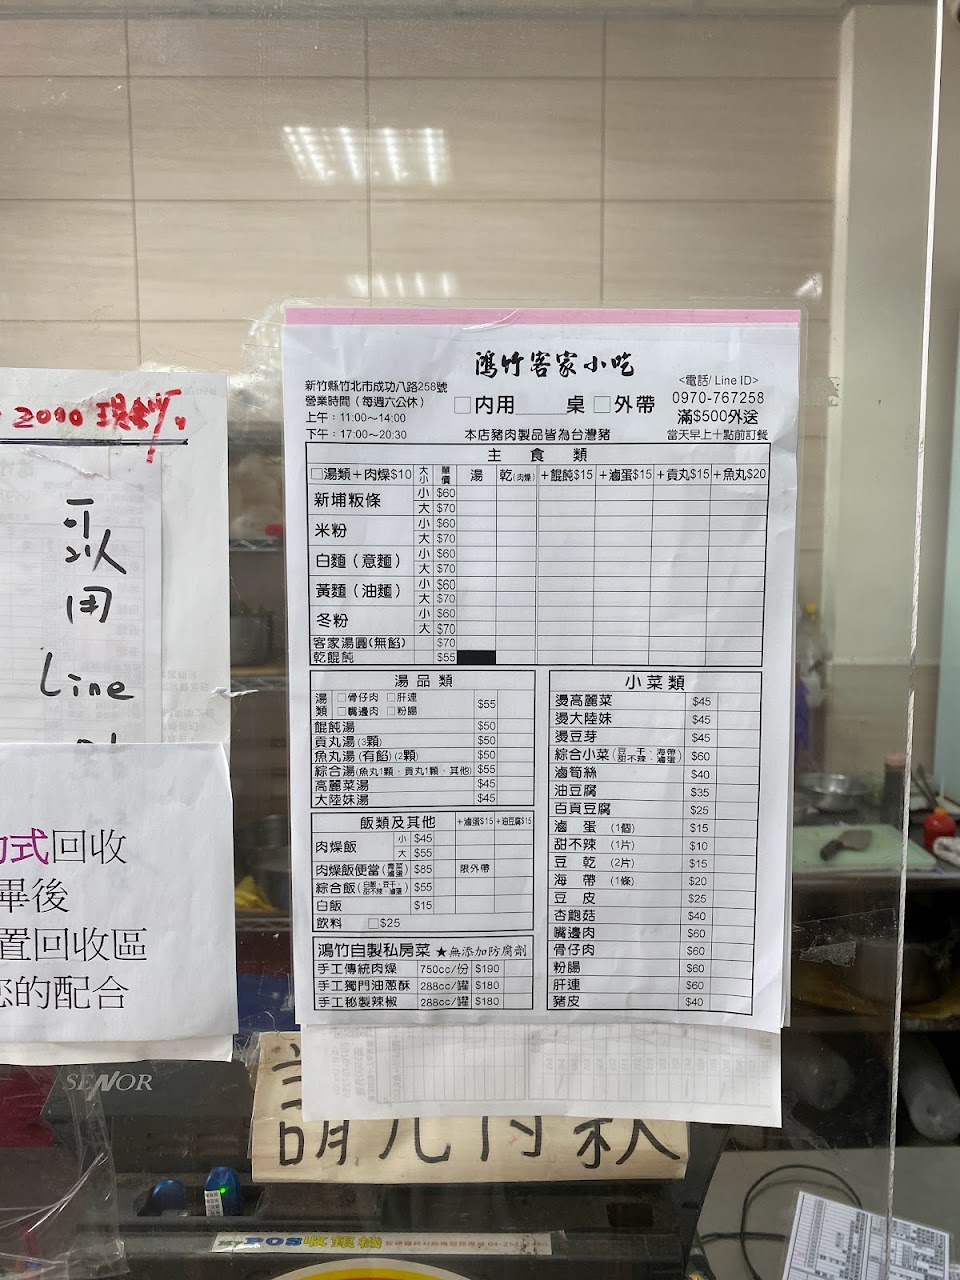 鴻竹客家小吃
新竹縣竹北市成功八路258號
營業時間（每週六公休）
上午：11:00～14:00
下午：17:00～20:30
□內用 桌 □外帶
本店豬肉製品皆為台灣豬
<電話/ Line ID>
0970-767258
滿$500外送
當天早上十點前訂餐
主食類
□湯類＋肉燥$10 大小 單價 湯 乾(肉燥) ＋餛飩$15 ＋滷蛋$15 ＋貢丸$15 ＋魚丸$20
新埔粄條 小 $60
大 $70
米粉 小 $60
大 $70
白麵（意麵） 小 $60
大 $70
黃麵（油麵） 小 $60
大 $70
冬粉 小 $60
大 $70
客家湯圓(無餡) $70
乾餛飩 $55
湯品類
湯類 □骨仔肉 □肝連 $55
□嘴邊肉 □粉腸
餛飩湯 $50
貢丸湯(3顆) $50
魚丸湯(有餡)(2顆) $50
綜合湯(魚丸1顆、貢丸1顆、其他) $55
高麗菜湯 $45
大陸妹湯 $45
飯類及其他 ＋滷蛋$15 ＋油豆腐$15
肉燥飯 小 $45
大 $55
肉燥飯便當(青菜 滷蛋) $85 限外帶
綜合飯(白飯、豆干、甜不辣、滷蛋) $55
白飯 $15
飲料 □$25
鴻竹自製私房菜 ★無添加防腐劑
手工傳統肉燥 750cc/份 $190
手工獨門油蔥酥 288cc/罐 $180
手工秘製辣椒 288cc/罐 $180
小菜類
燙高麗菜 $45
燙大陸妹 $45
燙豆芽 $45
綜合小菜(豆干、海帶 甜不辣、滷蛋) $60
滷筍絲 $40
油豆腐 $35
百頁豆腐 $25
滷蛋 (1個) $15
甜不辣 (1片) $10
豆乾 (2片) $15
海帶 (1條) $20
豆皮 $25
杏鮑菇 $40
嘴邊肉 $60
骨仔肉 $60
粉腸 $60
肝連 $60
豬皮 $40
2000 現鈔
可以
用
Line
式回收
畢後
置回收區
您的配合
SENOR
請先付款
POS收銀機